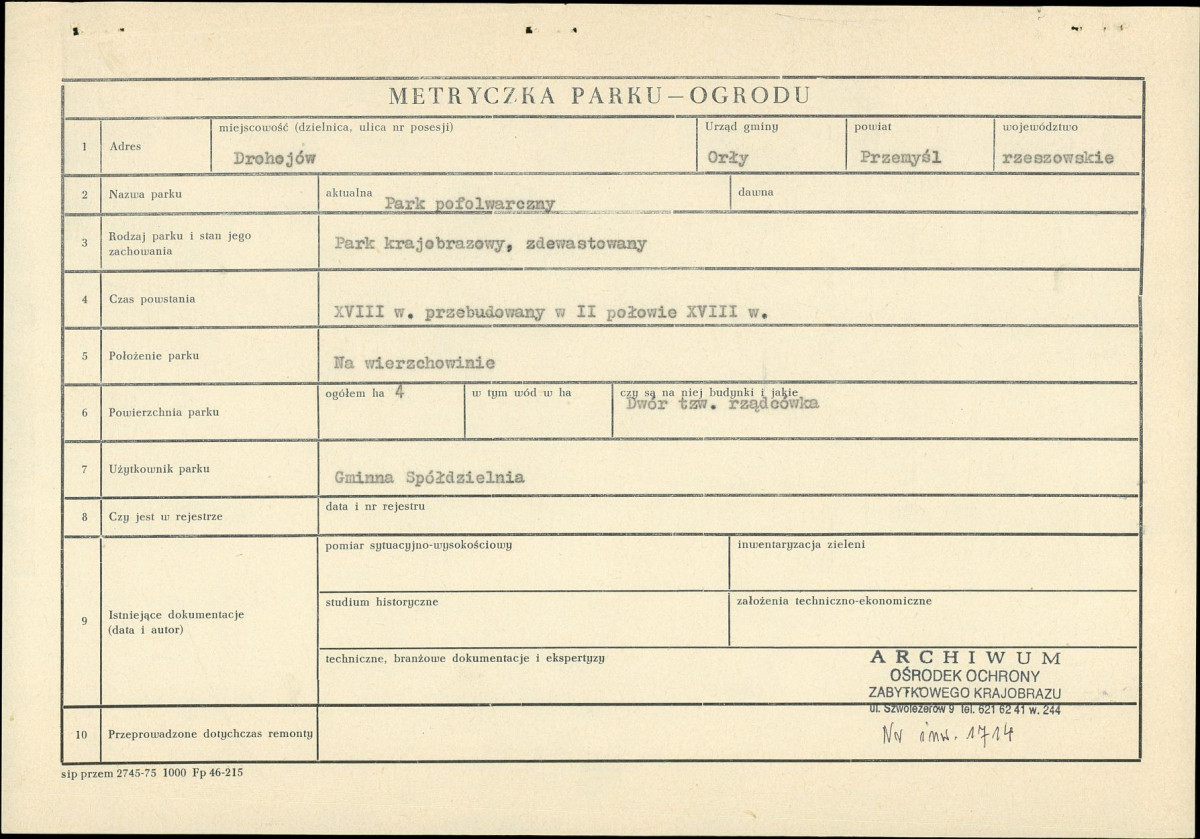 METRYCZKA PARKU—OGRODU
1
Adres
miejscowość (dzielnica, ulica nr posesji)
Drohojów
Urząd gminy
Orły
powiat
Przemyśl
województwo
rzeszowskie
2
Nazwa parku
aktualna
Park pofolwarczny
dawna
3
Rodzaj parku i stan jego
zachowania
Park krajobrazowy, zdewastowany
4
Czas powstania
XVIII w. przebudowany w II połowie XVIII w.
5
Położenie parku
Na wierzchowinie
6
Powierzchnia parku
ogółem ha 4
w tym wód w ha
czy są na niej budynki i jakie
Dwór tzw. rządcówka
7
Użytkownik parku
Gminna Spółdzielnia
8
Czy jest w rejestrze
data i nr rejestru
9
Istniejące dokumentacje
(data i autor)
pomiar sytuacyjno-wysokościowy
inwentaryzacja zieleni
studium historyczne
założenia techniczno-ekonomiczne
techniczne, branżowe dokumentacje i ekspertyzy
ARCHIWUM
OŚRODEK OCHRONY
ZABYTKOWEGO KRAJOBRAZU
ul. Szwoleżerów 9 tel. 621 62 41 w. 244
Nr inw. 1714
10
Przeprowadzone dotychczas remonty
sip przem 2745-75 1000 Fp 46-215